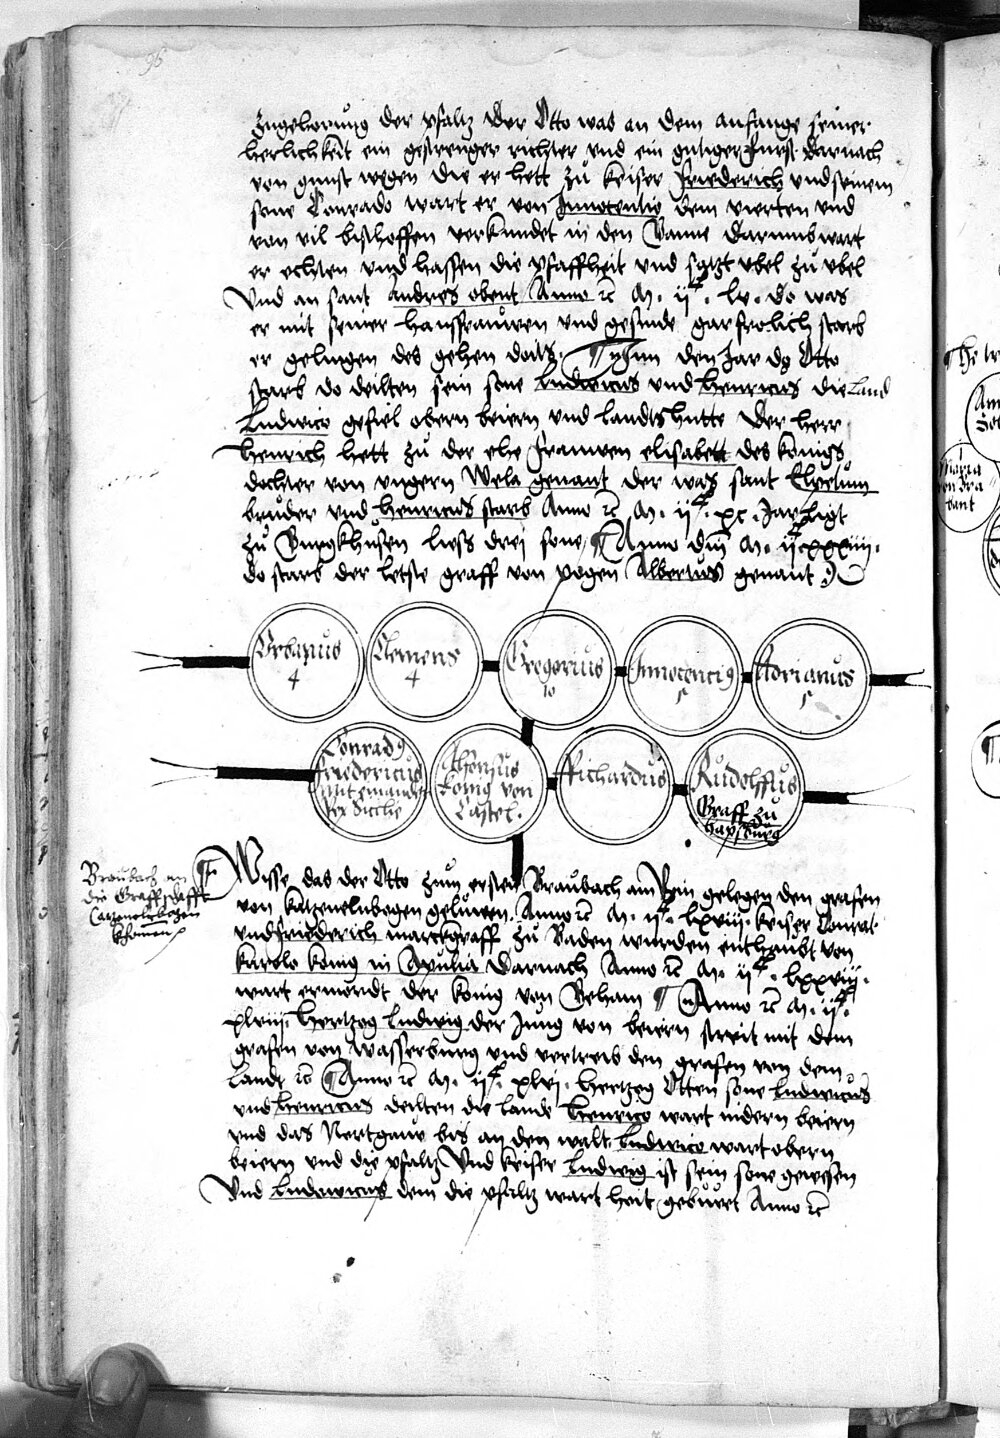 96
Zugehorung der pfaltz Der Otto was an dem anfange seiner
herlichkeit ein gestrenger richter und ein gutiger furst Darnach
von gunst wegen die er hett zu keiser Friederich und seinem
sone Conrado wart er von Innocentio dem vierten und
von vil bischoffen verkundet in den Banne Darumb wart
er echten und hassen die pfaffheit und setzt ubel zu ubel
Und an sant andres obent Anno rc M. ijc. lv. do was
er mit seiner haussfrauwen und gesinde gar frolich starb
er gelingen des gehen doits. In den Jar do Otto
starb do deilten sein sone Ludwicus und Henricus die Land
Ludwico gefiel obern beiern und landtshutte Der herr
Henrich hett zu der ehe frauwen elisabett des konigs
dochter von ungern Wela genant der was sant
bruder und Henricus starb Anno rc M. ijc. xc. Jar ligt
zu Burgkhusen liess drej sone ¶ Anno dni M. ijc xxxiiij.
do starb der letste graff von pogen Albertus genant
Urbanus
4
Clemens
4
Gregorius
10
Innocenci9
5
Adrianus
5
Conrad9
friedericus
rex Sicilie
Alfonsus
konig von
Castel.
Richardus
Rudolffus
Graff zu
hapsburg
Braubach an
die Graffschafft
Catzenelnbogen
khomen
¶ Wisse das der Otto zum ersten Braubach am Rin gelegen den grafen
von katzenelnbogen geluwen. Anno rc M. ijc. lxviij. keiser Conrat
und friederich marckgraff zu Baden wurden enthaubt von
karolo konig in Apulia Darnach Anno rc M. ijc. lxxviij.
wart ermordt der konig von Beham ¶ Anno rc M. ijc.
xlviij. Hertzog Ludwig der Jung von beiern streit mit dem
grafen von Wasserburg und vertreib den grafen von dem
Landt rc ¶ Anno rc M. ijc. xlvj. Hertzog Otten sone Ludwicus
und Henricus deilten die lande Henrico wart nidern beiern
und das Nortgauw bis an den walt. Ludwico wart obern
beiern und die pfaltz Und keiser Ludwig ist sein sone gewesen
Und Ludowicus dem die pfaltz wart heit geburt Anno rc